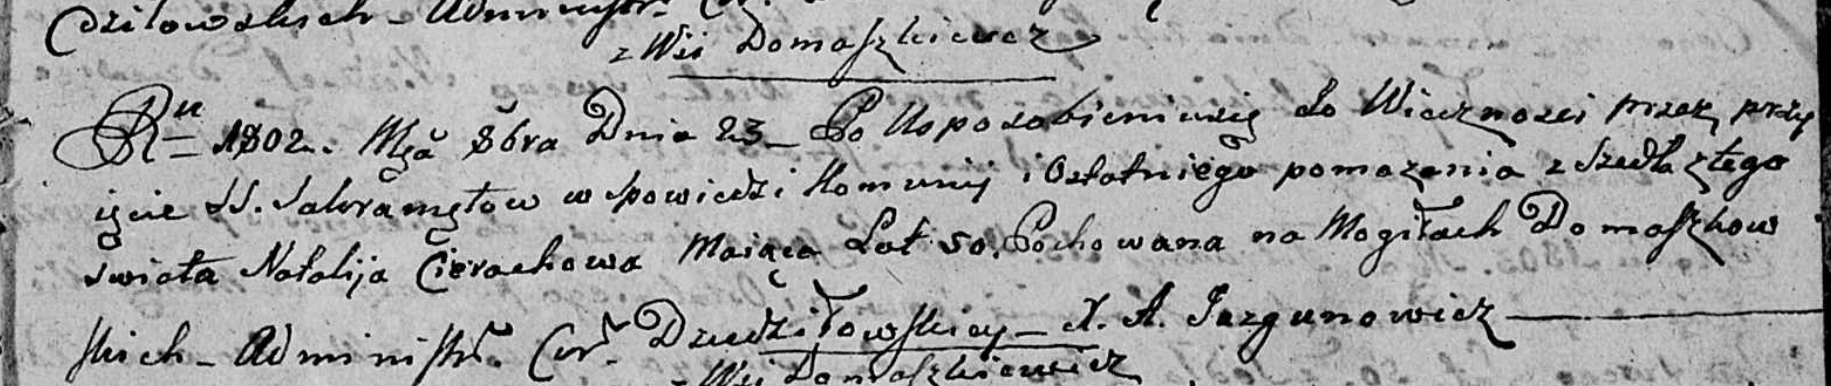 Dziłowskich - Administr.
z Wsi Domaszkiewicz
Ru 1802. Mςa 8bra Dnia 23 - Po Usposobieniu się do Wieczności przez przy
ięcie SS. Sakramętow w Spowiedzi Komunij i Ostatniego pomazania z Szedła z tego
świata Natalija Cierachowa Maiąca Lat 50. Pochowana na Mogiłach Domaszkow
skich - Administr. Cur. Dziedziłowskiey - X. A. Jazgunowicz
z Wsi Domaszkiewicz